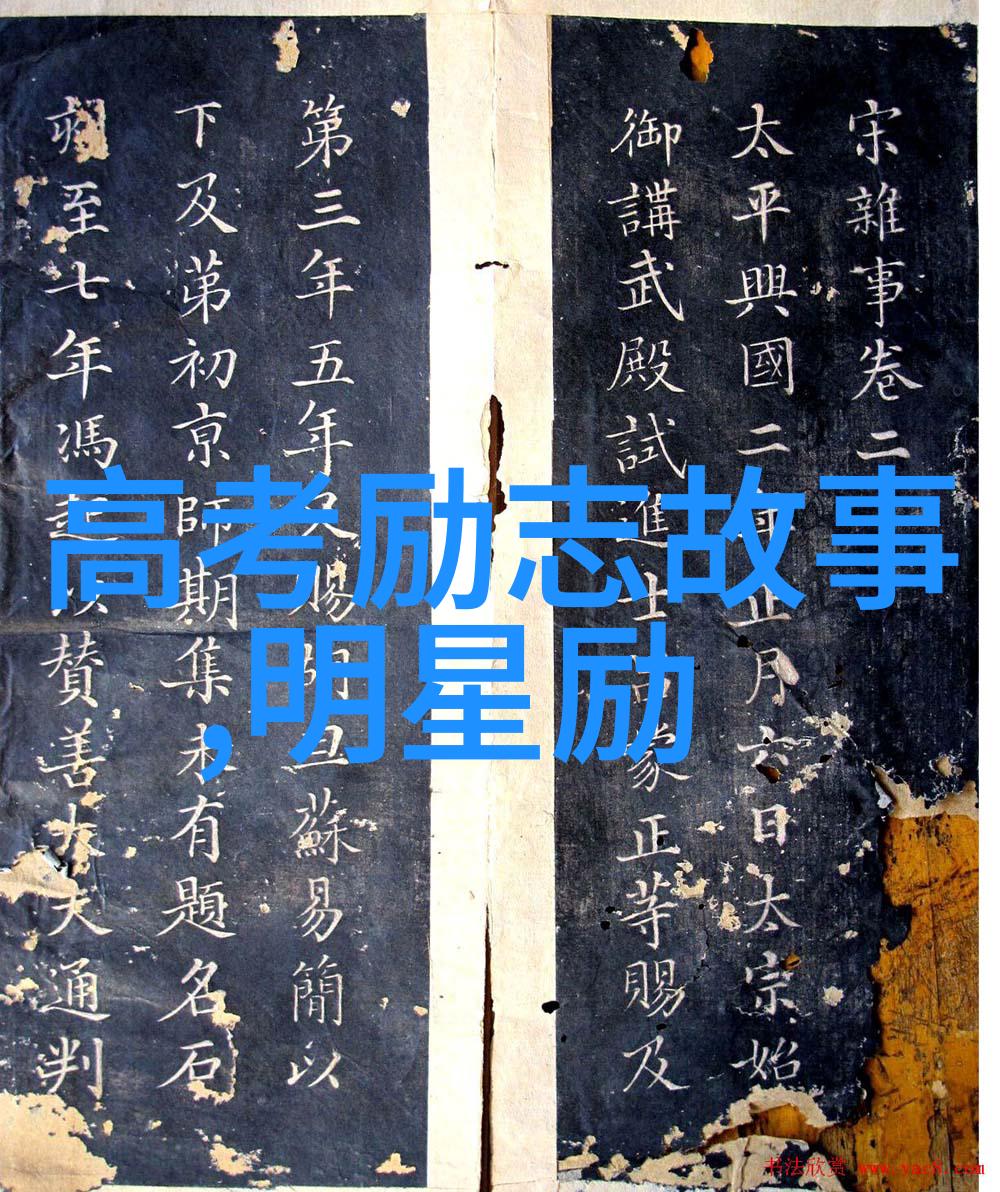 宋雜事卷二
太平興國二年正月六日太宗始
御講武殿試進士蒙正等賜及
第三年五年又賜胡旦蘇易簡以
下及苐初京師期集未有題名石
刻至七年馮起贊善大夫通判
高考励志故事
,明星励
书法欣赏 www.yac8.com